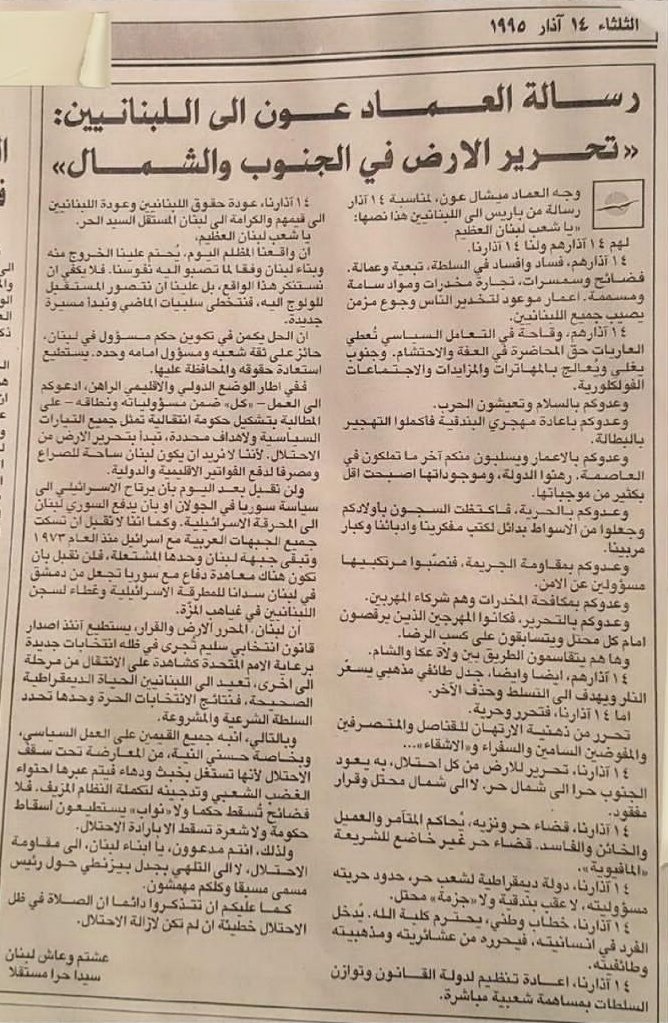 الثلثاء ١٤ آذار ١٩٩٥
رسالة العماد عون الى اللبنانيين:
«تحرير الارض في الجنوب والشمال»
وجه العماد ميشال عون، لمناسبة ١٤ آذار
رسالة من باريس الى اللبنانيين هذا نصها:
«يا شعب لبنان العظيم
لهم ١٤ آذارهم ولنا ١٤ آذارنا.
١٤ آذارهم، فساد وافساد في السلطة، تبعية وعمالة.
فضائح وسمسرات، تجارة مخدرات ومواد سامة
ومسممة. اعمار موعود لتخدير الناس وجوع مزمن
يصيب جميع اللبنانيين.
١٤ آذارهم، وقاحة في التعامل السياسي تُعطي
العاريات حق المحاضرة في العفة والاحتشام. وجنوب
يغلي ويُعالج بالمهاترات والمزايدات والاجتماعات
الفولكلورية.
وعدوكم بالسلام وتعيشون الحرب.
وعدوكم باعادة مهجري البندقية فأكملوا التهجير
بالبطالة.
وعدوكم بالاعمار ويسلبون منكم آخر ما تملكون في
العاصمة. رهنوا الدولة، وموجوداتها اصبحت اقل
بكثير من موجباتها.
وعدوكم بالحرية، فاكتظت السجون بأولادكم
وجعلوا من الاسواط بدائل لكتب مفكرينا وادبائنا وكبار
مربينا.
وعدوكم بمقاومة الجريمة، فنصّبوا مرتكبيها
مسؤولين عن الامن.
وعدوكم بمكافحة المخدرات وهم شركاء المهربين.
وعدوكم بالتحرير، فكانوا المهرجين الذين يرقصون
امام كل محتل ويتسابقون على كسب الرضا.
وها هم يتقاسمون الطريق بين ولاة عكا والشام.
١٤ آذارهم، ايضا وايضا، جدل طائفي مذهبي يسعّر
النار ويهدف الى التسلط وحذف الآخر.
اما ١٤ آذارنا، فتحرر وحرية.
تحرر من ذهنية الارتهان للقناصل والمتصرفين
والمفوضين السامين والسفراء و«الاشقاء»...
١٤ آذارنا، تحرير للارض من كل احتلال، به يعود
الجنوب حرا الى شمال حر. لا الى شمال محتل وقرار
مفقود.
١٤ آذارنا، قضاء حر ونزيه، يُحاكم المتآمر والعميل
والخائن والفاسد. قضاء حر غير خاضع للشريعة
«المافيوية».
١٤ آذارنا، دولة ديمقراطية لشعب حر، حدود حريته
مسؤوليته، لا عقب بندقية ولا «جزمة» محتل.
١٤ آذارنا، خطاب وطني، يحترم كلية الله. يُدخل
الفرد في انسانيته، فيحرره من عشائريته ومذهبيته
وطائفيته.
١٤ آذارنا، اعادة تنظيم لدولة القانون وتوازن
السلطات بمساهمة شعبية مباشرة.
١٤ آذارنا، عودة حقوق اللبنانيين وعودة اللبنانيين
الى قيمهم والكرامة الى لبنان المستقل السيد الحر.
يا شعب لبنان العظيم،
ان واقعنا المظلم اليوم، يُحتم علينا الخروج منه
وبناء لبنان وفقا لما تصبو اليه نفوسنا. فلا يكفي ان
نستنكر هذا الواقع، بل علينا ان نتصور المستقبل
للولوج اليه، فنتخطى سلبيات الماضي ونبدأ مسيرة
جديدة.
ان الحل يكمن في تكوين حكم مسؤول في لبنان،
حائز على ثقة شعبه ومسؤول امامه وحده. يستطيع
استعادة حقوقه والمحافظة عليها.
ففي اطار الوضع الدولي والاقليمي الراهن، ادعوكم
الى العمل – «كل» ضمن مسؤولياته ونطاقه – على
المطالبة بتشكيل حكومة انتقالية تمثل جميع التيارات
السياسية ولاهداف محددة، تبدأ بتحرير الارض من
الاحتلال. لأننا لا نريد ان يكون لبنان ساحة للصراع
ومصرفا لدفع الفواتير الاقليمية والدولية.
ولن نقبل بعد اليوم بأن يرتاح الاسرائيلي الى
سياسة سوريا في الجولان او بأن يدفع السوري لبنان
الى المحرقة الاسرائيلية. وكما اننا لا نقبل ان تسكت
جميع الجبهات العربية مع اسرائيل منذ العام ١٩٧٣
وتبقى جبهة لبنان وحدها المشتعلة، فلن نقبل بأن
تكون هناك معاهدة دفاع مع سوريا تجعل من دمشق
في لبنان سدانا للمطرقة الاسرائيلية وغطاء لسجن
اللبنانيين في غياهب المزّة.
ان لبنان، المحرر الارض والقرار، يستطيع آنئذ اصدار
قانون انتخابي سليم تُجرى في ظله انتخابات جديدة
برعاية الامم المتحدة كشاهدة على الانتقال من مرحلة
الى اخرى، تعيد الى اللبنانيين الحياة الديمقراطية
الصحيحة، فنتائج الانتخابات الحرة وحدها تحدد
السلطة الشرعية والمشروعة.
وبالتالي، انبه جميع القيمين على العمل السياسي،
وبخاصة حسني النية، من المعارضة تحت سقف
الاحتلال لأنها تستغل بخبث ودهاء فيتم عبرها احتواء
الغضب الشعبي وتدجينه لتكملة النظام المزيف. فلا
فضائح تُسقط حكما ولا «نواب» يستطيعون اسقاط
حكومة ولا شعرة تسقط الا بارادة الاحتلال.
ولذلك، انتم مدعوون، يا ابناء لبنان، الى مقاومة
الاحتلال، لا الى التلهي بجدل بيزنطي حول رئيس
مسمى مسبقا وكلكم مهمشون.
كما عليكم ان تتذكروا دائما ان الصلاة في ظل
الاحتلال خطيئة ان لم تكن لازالة الاحتلال.
عشتم وعاش لبنان
سيدا حرا مستقلا